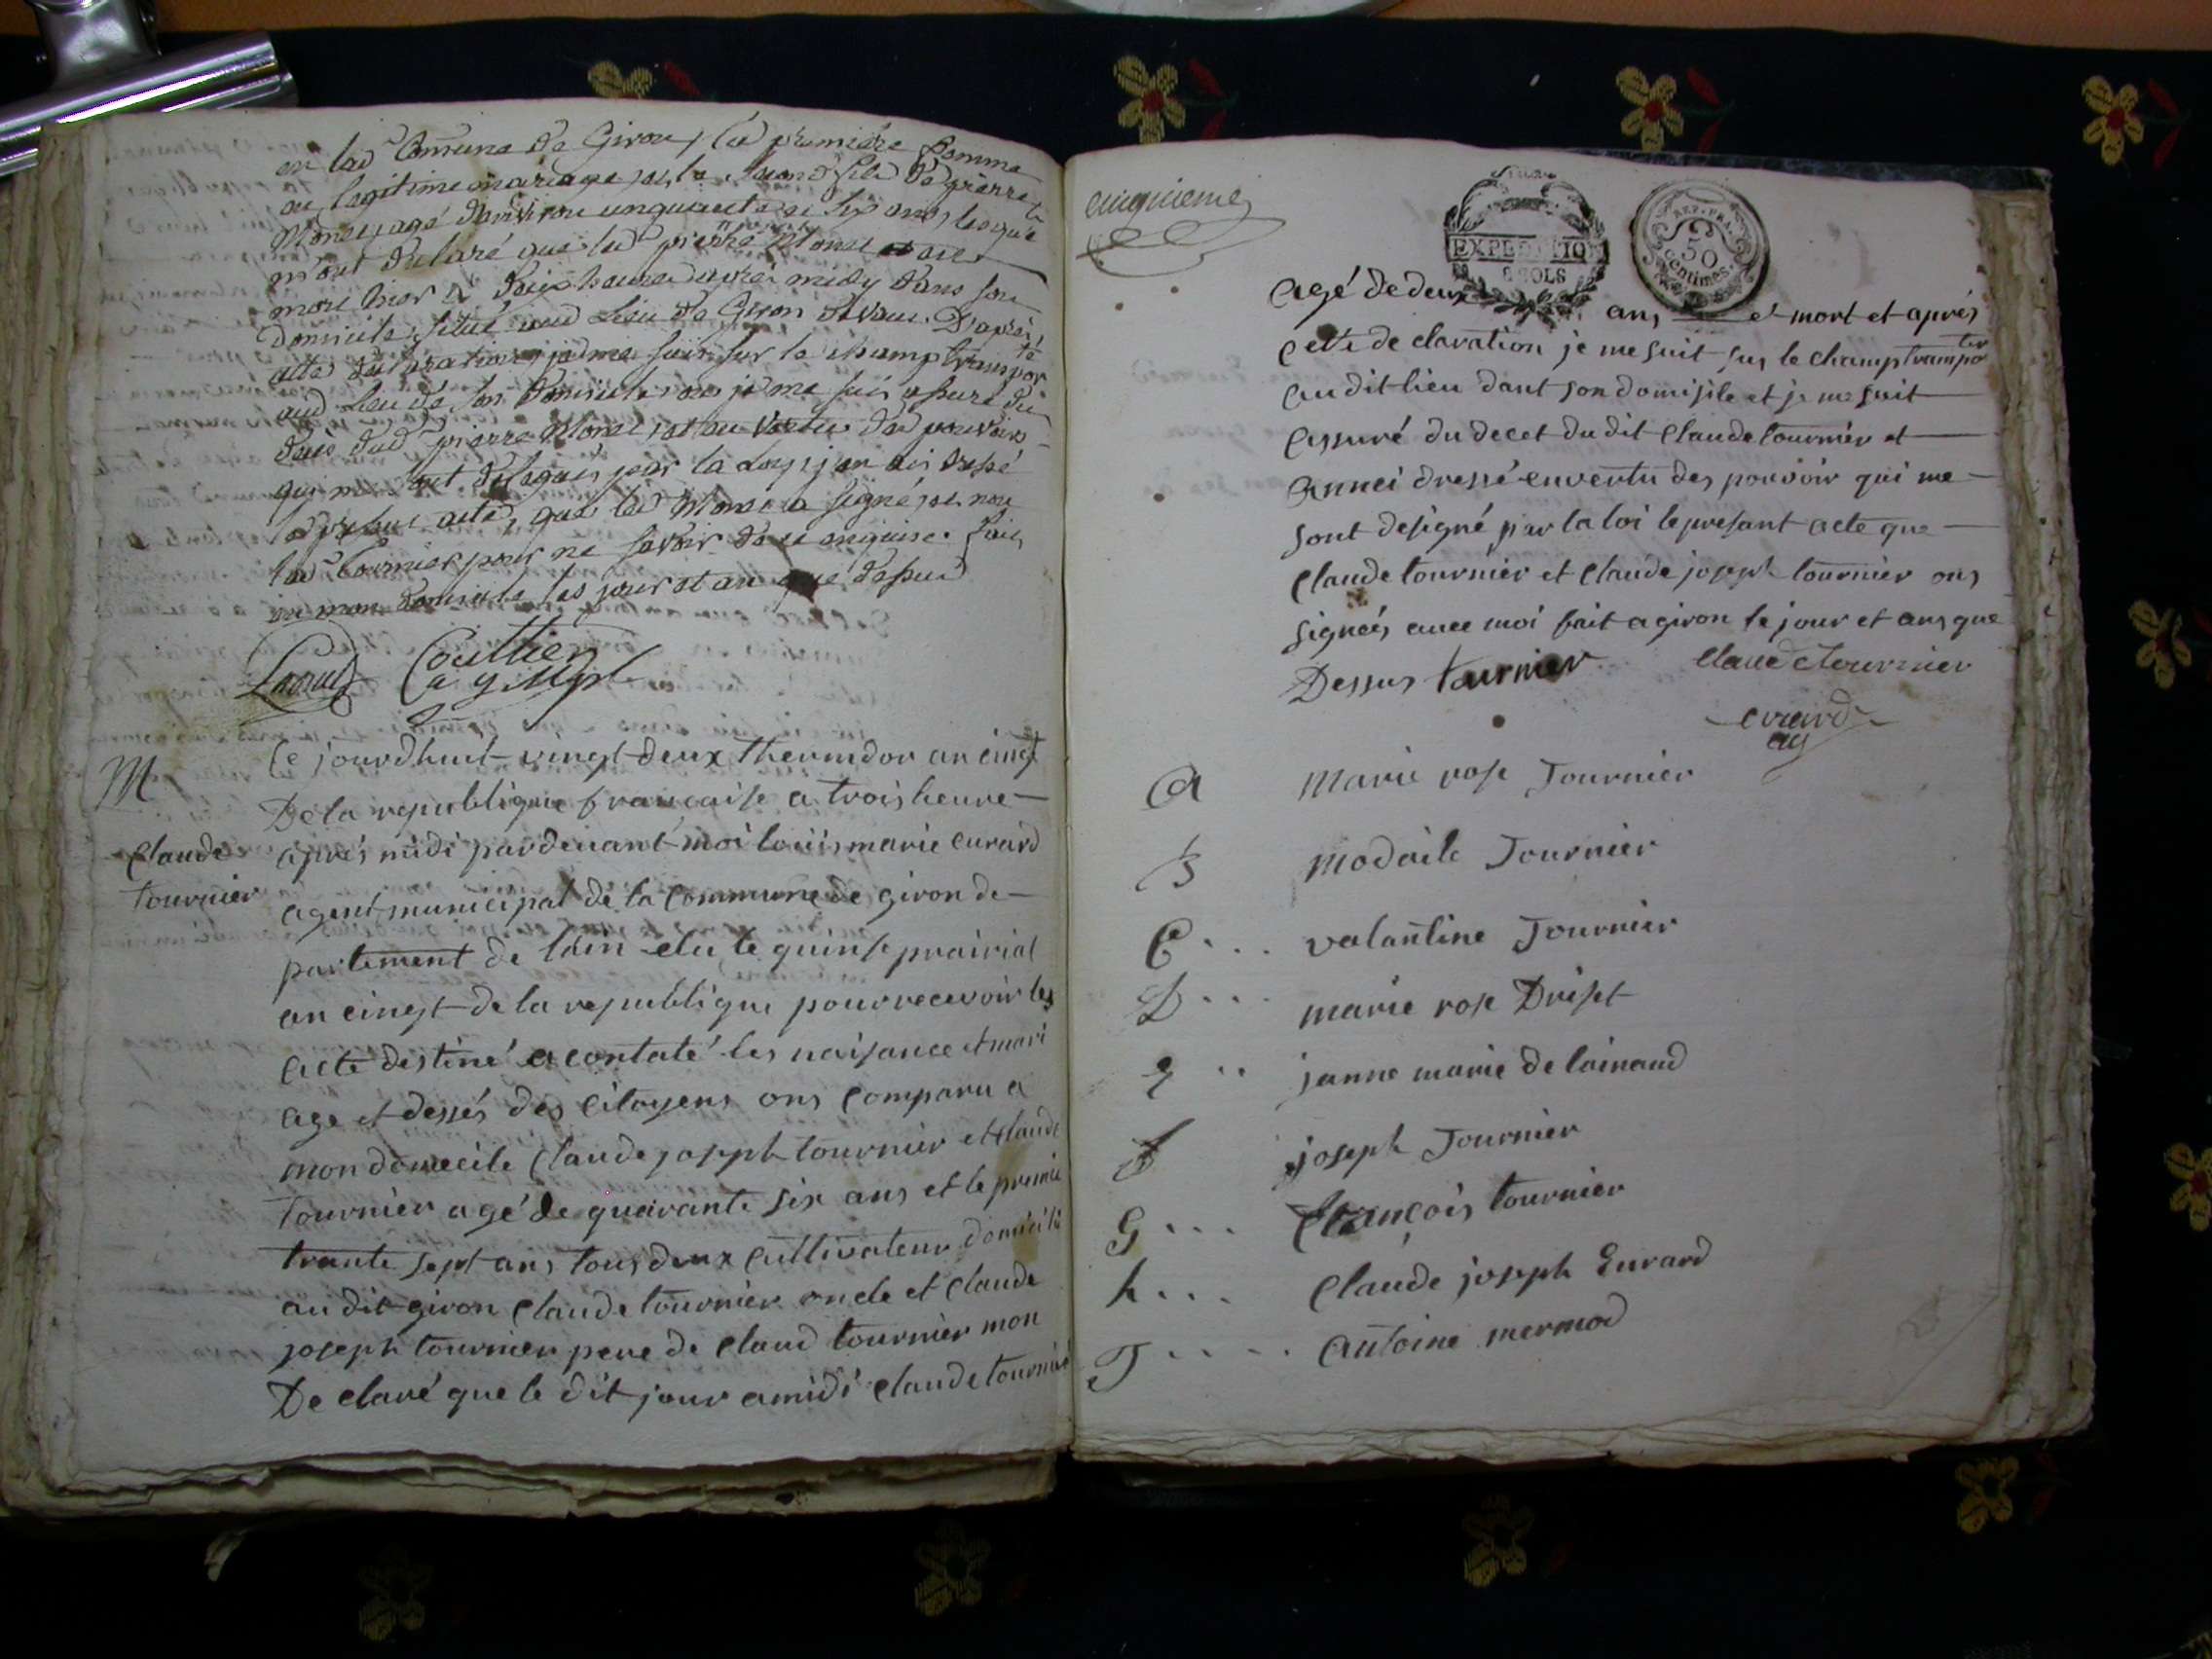 en lad Comune de Giron, la premiere Comme
en legitime mariage, et la second fils de pierre
Monet, agé d'environ cinquante et six ans, lesquels
m'ont declaré que led pierre Monet est
mort hier à heure après midy dans son
domicile, situé aud Lieu de Giron D'après
cette declaration, je me suis sur le champ transporté
aud Lieu de son domicile, où je me suis assuré du
decès dud pierre Monet, et en vertu des pouvoirs
qui me sont delegués par la Loy, j'en ais dressé
le presant acte, que led Monet a signé, et non
led Tournier pour ne savoir de ce enquise. fait
en mon domicile les jour et an que dessus
M
Claude
tournier
Ce jourdhuit vingt deux thermidor an cinqt
De la republique francaise a trois heure
apres midi pardevant moi louis marie evrard
agent municipal de la commune de giron de
partement de lain elu le quinse prairial
an cinqt de la republique pour recevoir les
acte destiné a contaté les naisance et mari
age et dessés des citoyens ons comparu a
mon domecile Claude joseph tournier et claude
Tournier agé de quarante six ans et le premie
trante sept ans tous deux cultivateur domicilié
au dit giron Claude tournier oncle et claude
joseph tournier pere de claud tournier mon
De claré que le dit jour a midi claude tournier
cinquieme
EXPEDITION
SOLS
REP. FRA.
50
centimes
agé de deux ans et mort et aprés
cete de claration je me suit sus le champ transporter
au dit lieu dant son domisile et je me suit
assuré du decet du dit Claude tournier et
annei dressé en vertu des pouvoir qui me
sont designé par la loi le presant acte que
Claude tournier et Claude joseph tournier ons
signées avec moi fait a giron le jour et ans que
Dessus tournier claude tournier
evrard
ag
a marie rose Tournier
B modaile Tournier
C... valantine Tournier
D... marie rose Driset
E.. janne marie de lainaud
f joseph Tournier
G... françois tournier
h... Claude joseph Evrard
J..... antoine mermod